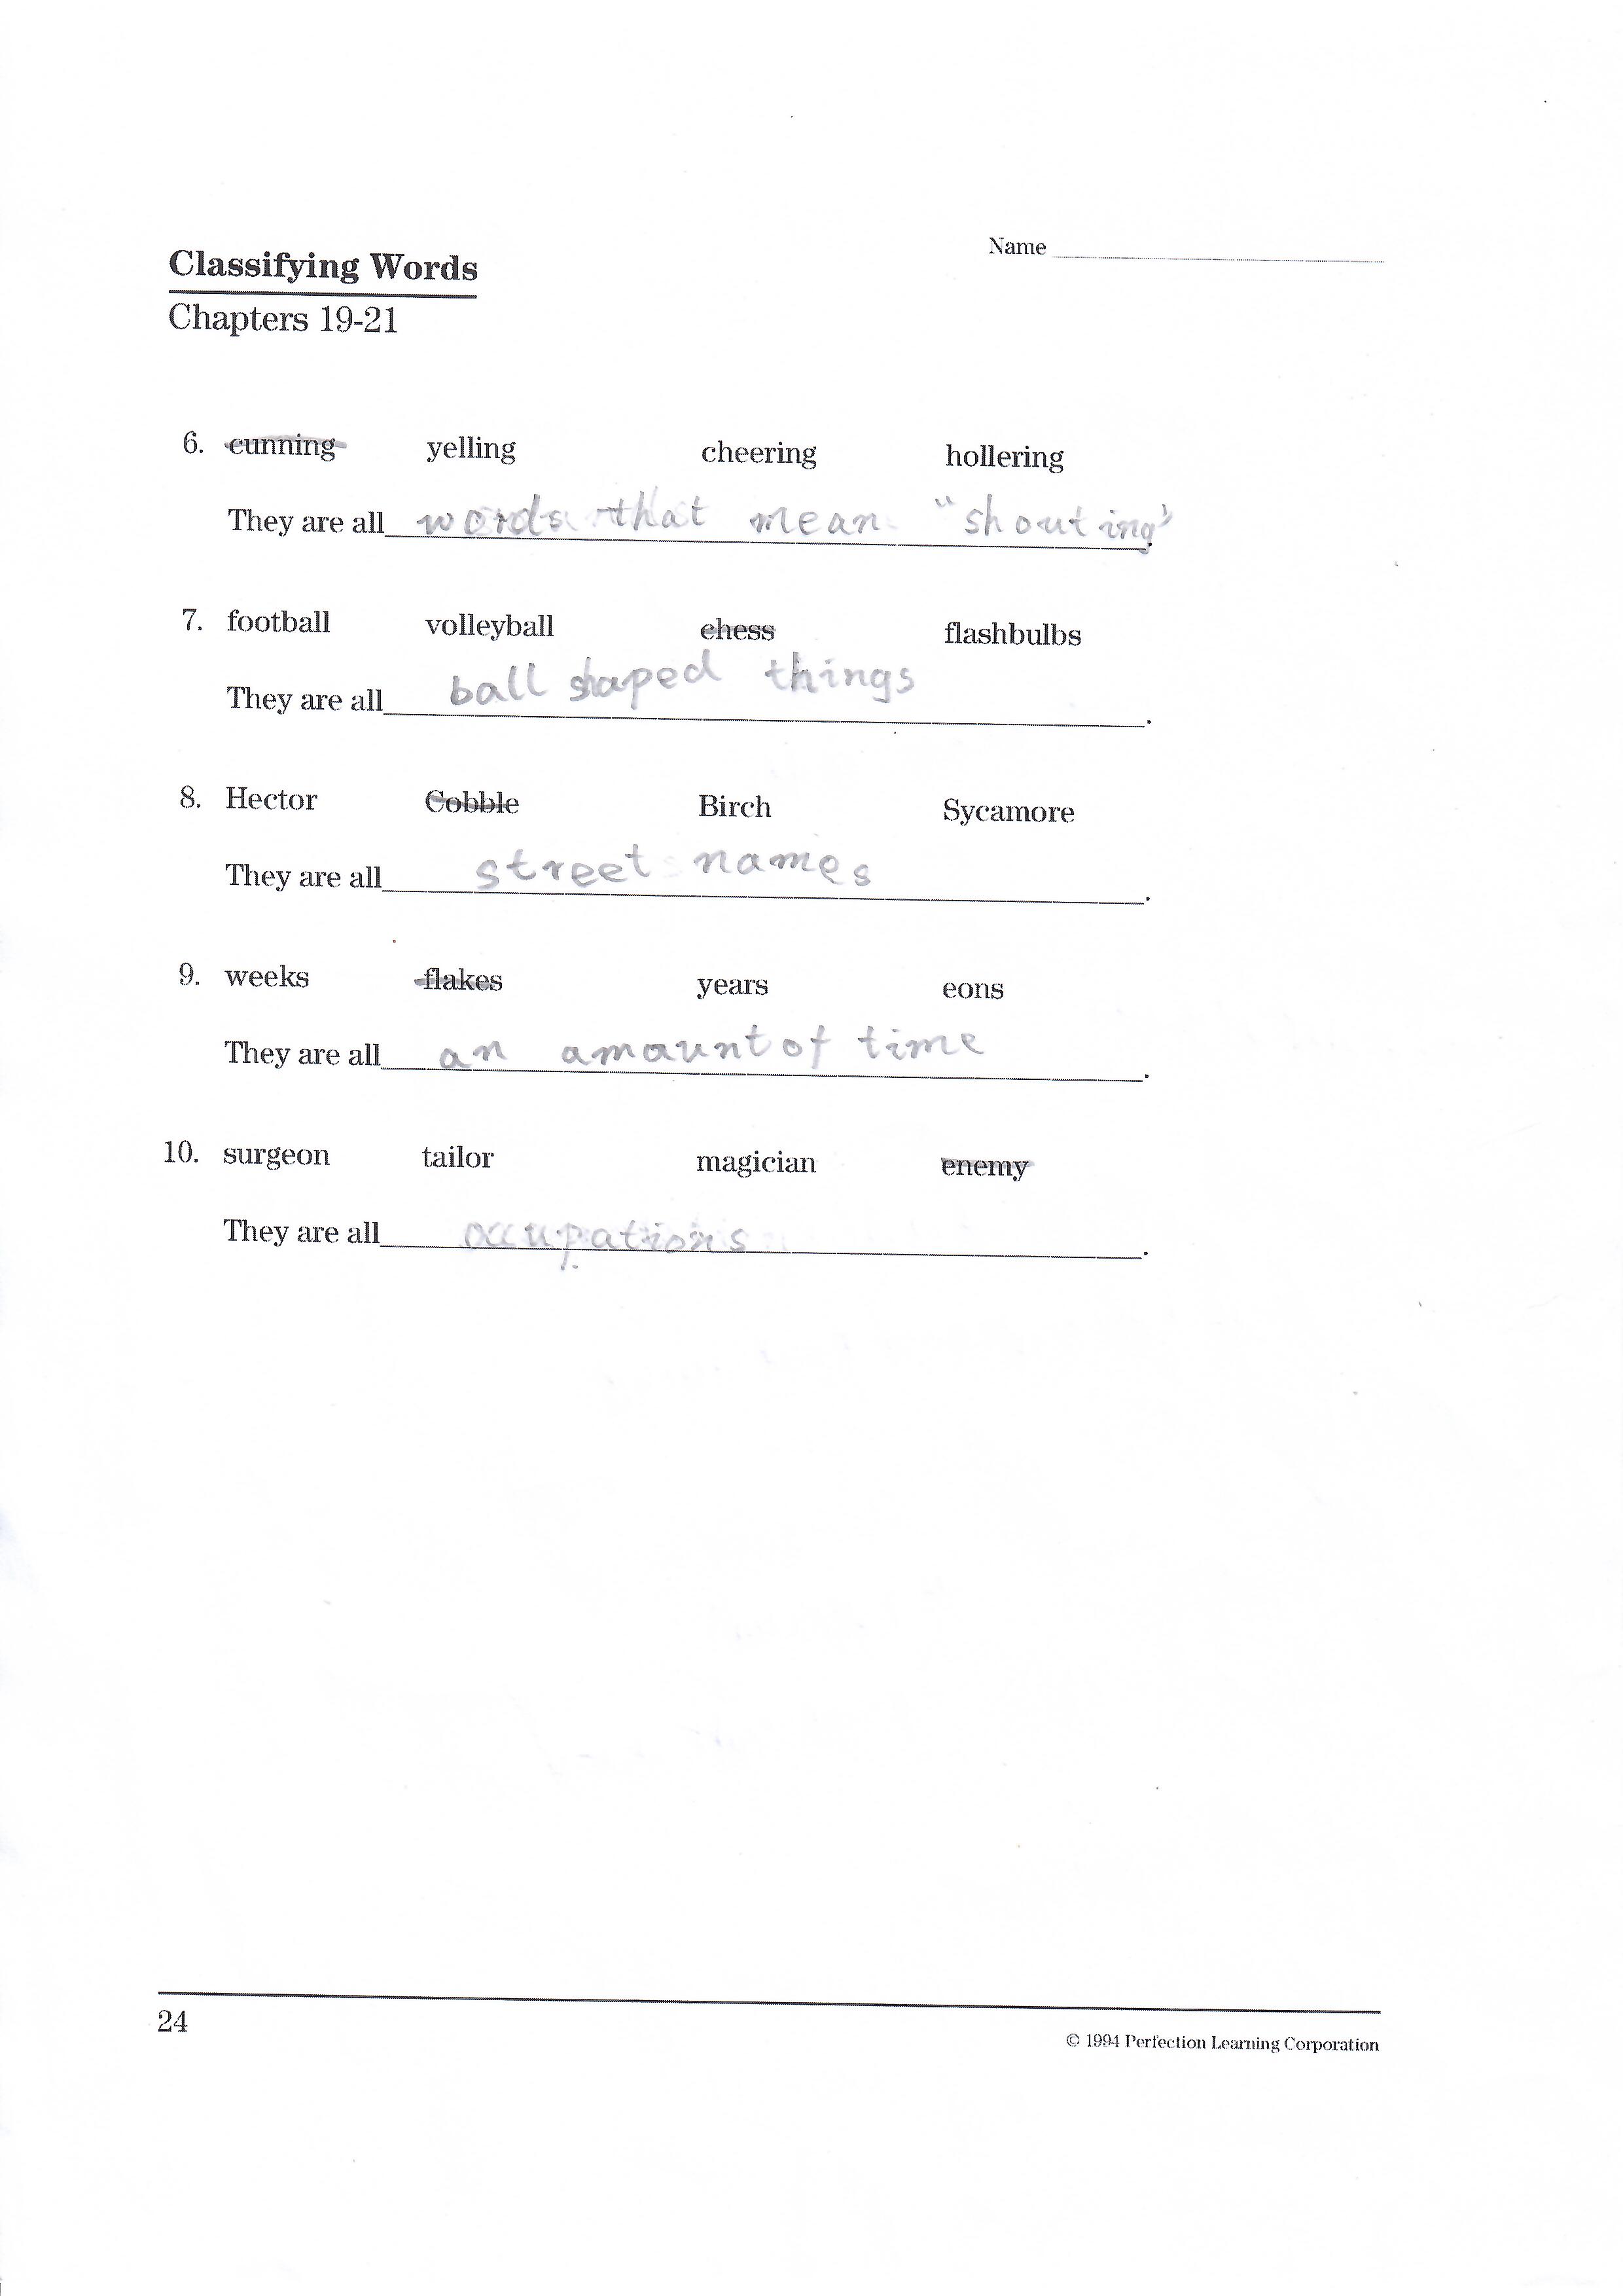 Name
Classifying Words
Chapters 19-21
6. cunning yelling cheering hollering
They are all words that mean "shouting".
7. football volleyball chess flashbulbs
They are all ball shaped things.
8. Hector Cobble Birch Sycamore
They are all street names.
9. weeks flakes years eons
They are all an amaunt of time.
10. surgeon tailor magician enemy
They are all occupations.
24
© 1994 Perfection Learning Corporation